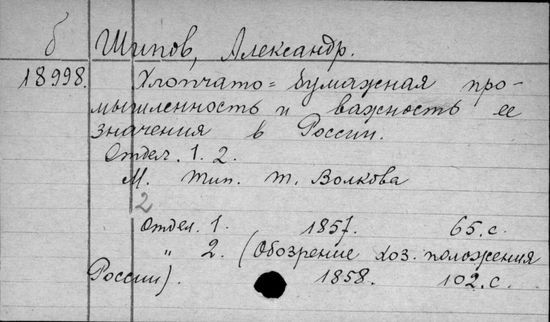 б Шипов, Александр.
18998. Хлопчато=бумажная про-
мышленность и важность ее
значения в России.
Отдел. 1. 2.
М. тип. т. Волкова
2
Отдел. 1. 1857. 65. с.
" 2. (Обозрение хоз. положения
России). 1858. 102. с.